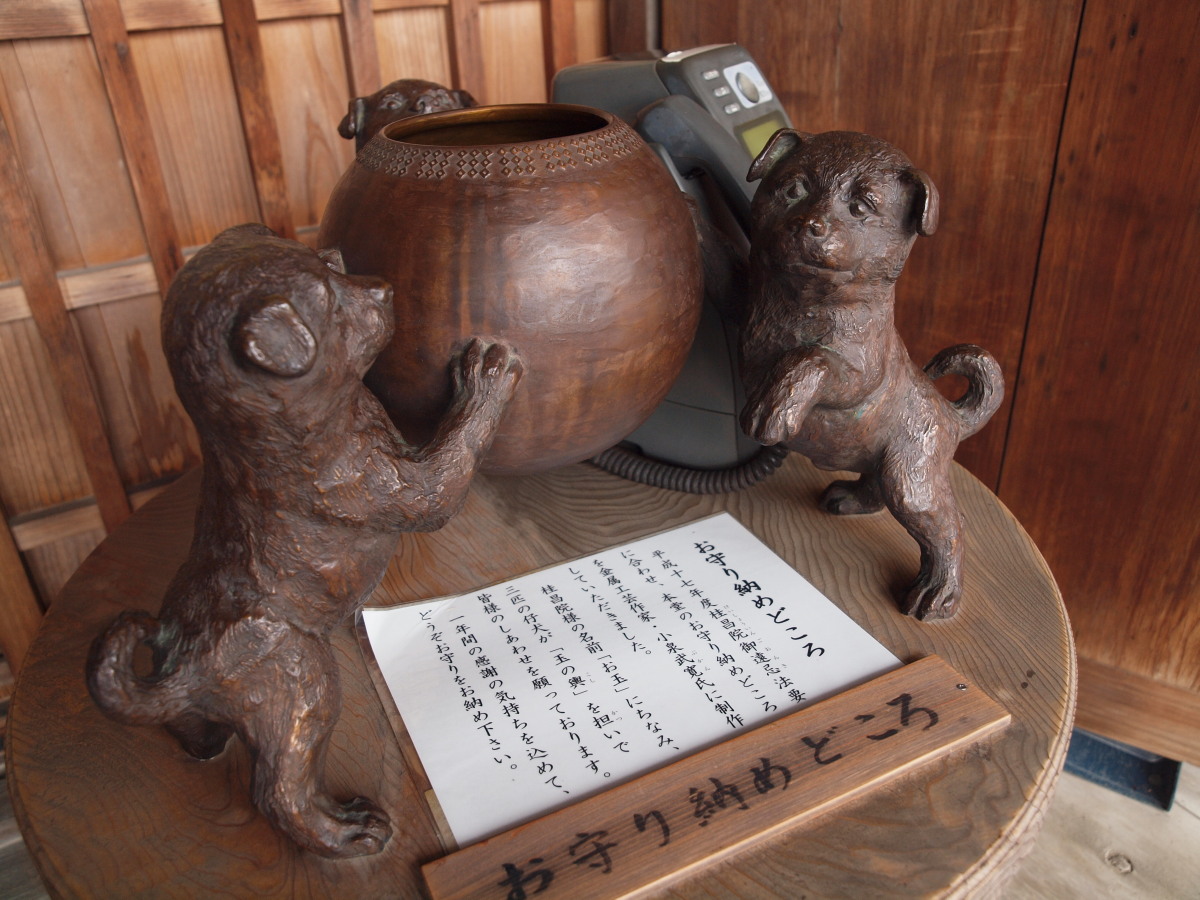 お守り納めどころ
平成十七年度桂昌院御遠忌法要
に合わせ、本堂のお守り納めどころ
を金属工芸作家・小泉武寛氏に制作
していただきました。
桂昌院様の名前「お玉」にちなみ、
三匹の仔犬が「玉の輿」を担いで
皆様のしあわせを願っております。
一年間の感謝の気持ちを込めて、
どうぞお守りをお納め下さい。
お守り納めどころ